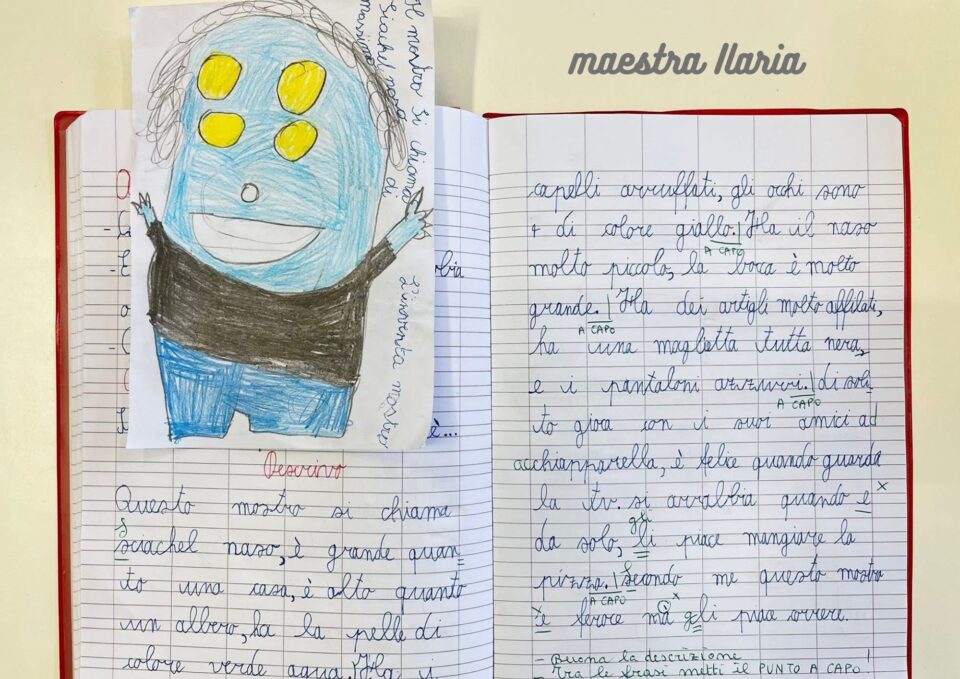 maestra Ilaria
Il mostro si chiama
Sciachel naso
di
massimo
L'inventa mostri
è...
Descrivo
Questo mostro si chiama
S
sciachel naso, è grande quan-
to una casa, è alto quanto
un albero, ha la pelle di
colore verde aqua. Ha i
capelli arruffati, gli occhi sono
4 di colore giallo. Ha il naso
A CAPO
molto piccolo, la boca è molto
grande. Ha dei artigli molto affilati,
A CAPO
ha una maglietta tutta nera,
e i pantaloni azzurri. di soli-
A CAPO
to gioca con i suoi amici ad
acchiapparella, è felice quando guarda
la tv. si arrabbia quando e x
gli
da solo, li piace mangiare la
pizza. Secondo me questo mostro
A CAPO
x x
è feroce ma gli piace correre.
- Buona la descrizione !
- Tra le frasi metti il PUNTO A CAPO